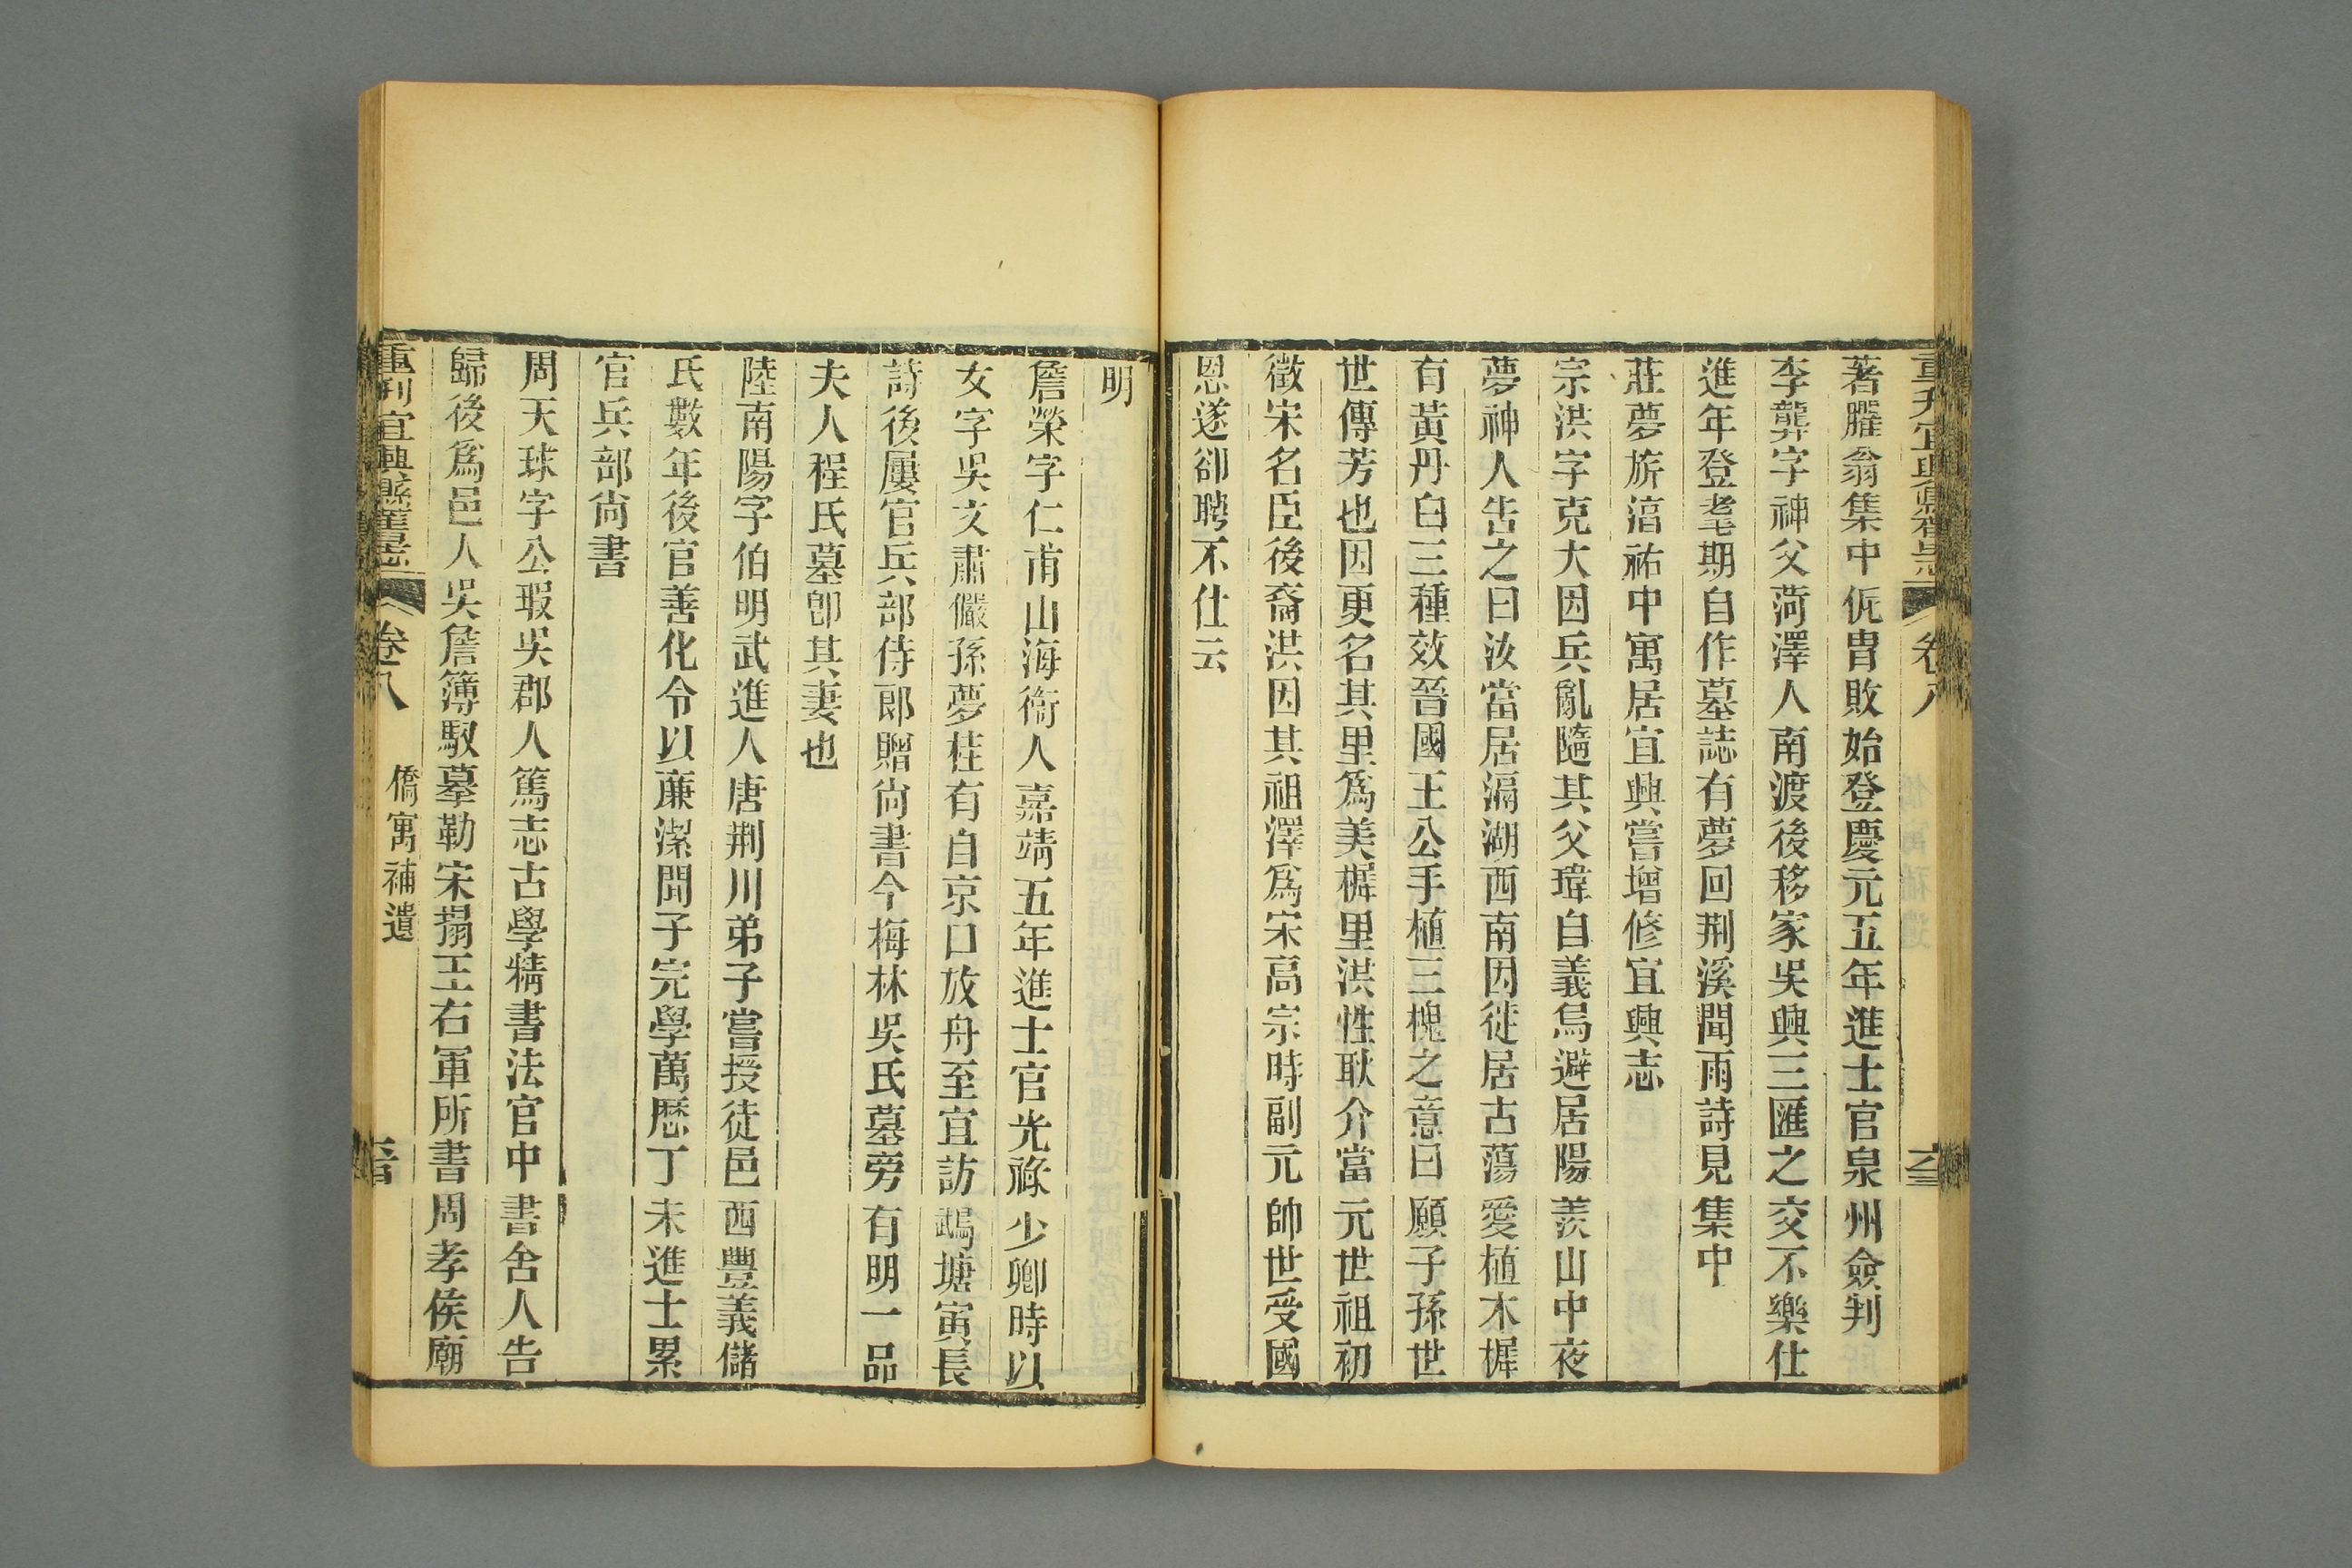 著臞翁集中侂胄敗始登慶元五年進士官泉州僉判
李龏字神父菏澤人南渡後移家吳興三匯之交不樂仕
進年登耄期自作墓誌有夢回荆溪聞雨詩見集中
莊夢旂淳祐中寓居宜興嘗增修宜興志
宗洪字克大因兵亂隨其父瑋自義烏避居陽羨山中夜
夢神人告之曰汝當居滆湖西南因徙居古蕩愛植木樨
有黃丹白三種效晉國王公手植三槐之意曰願子孫世
世傳芳也因更名其里爲美樨里洪性耿介當元世祖初
徵宋名臣後裔洪因其祖澤爲宋高宗時副元帥世受國
恩遂卻聘不仕云
明
詹榮字仁甫山海衞人嘉靖五年進士官光祿少卿時以
女字吳文肅儼孫夢桂有自京口放舟至宜訪鵡塘寅長
詩後屢官兵部侍郎贈尚書今梅林吳氏墓旁有明一品
夫人程氏墓卽其妻也
陸南陽字伯明武進人唐荆川弟子嘗授徒邑西豐義儲
氏數年後官善化令以廉潔聞子完學萬厯丁未進士累
官兵部尚書
周天球字公瑕吳郡人篤志古學精書法官中書舍人告
歸後爲邑人吳詹簿馭摹勒宋搨王右軍所書周孝侯廟
重刋宜興縣舊志
卷八
僑寓補遺